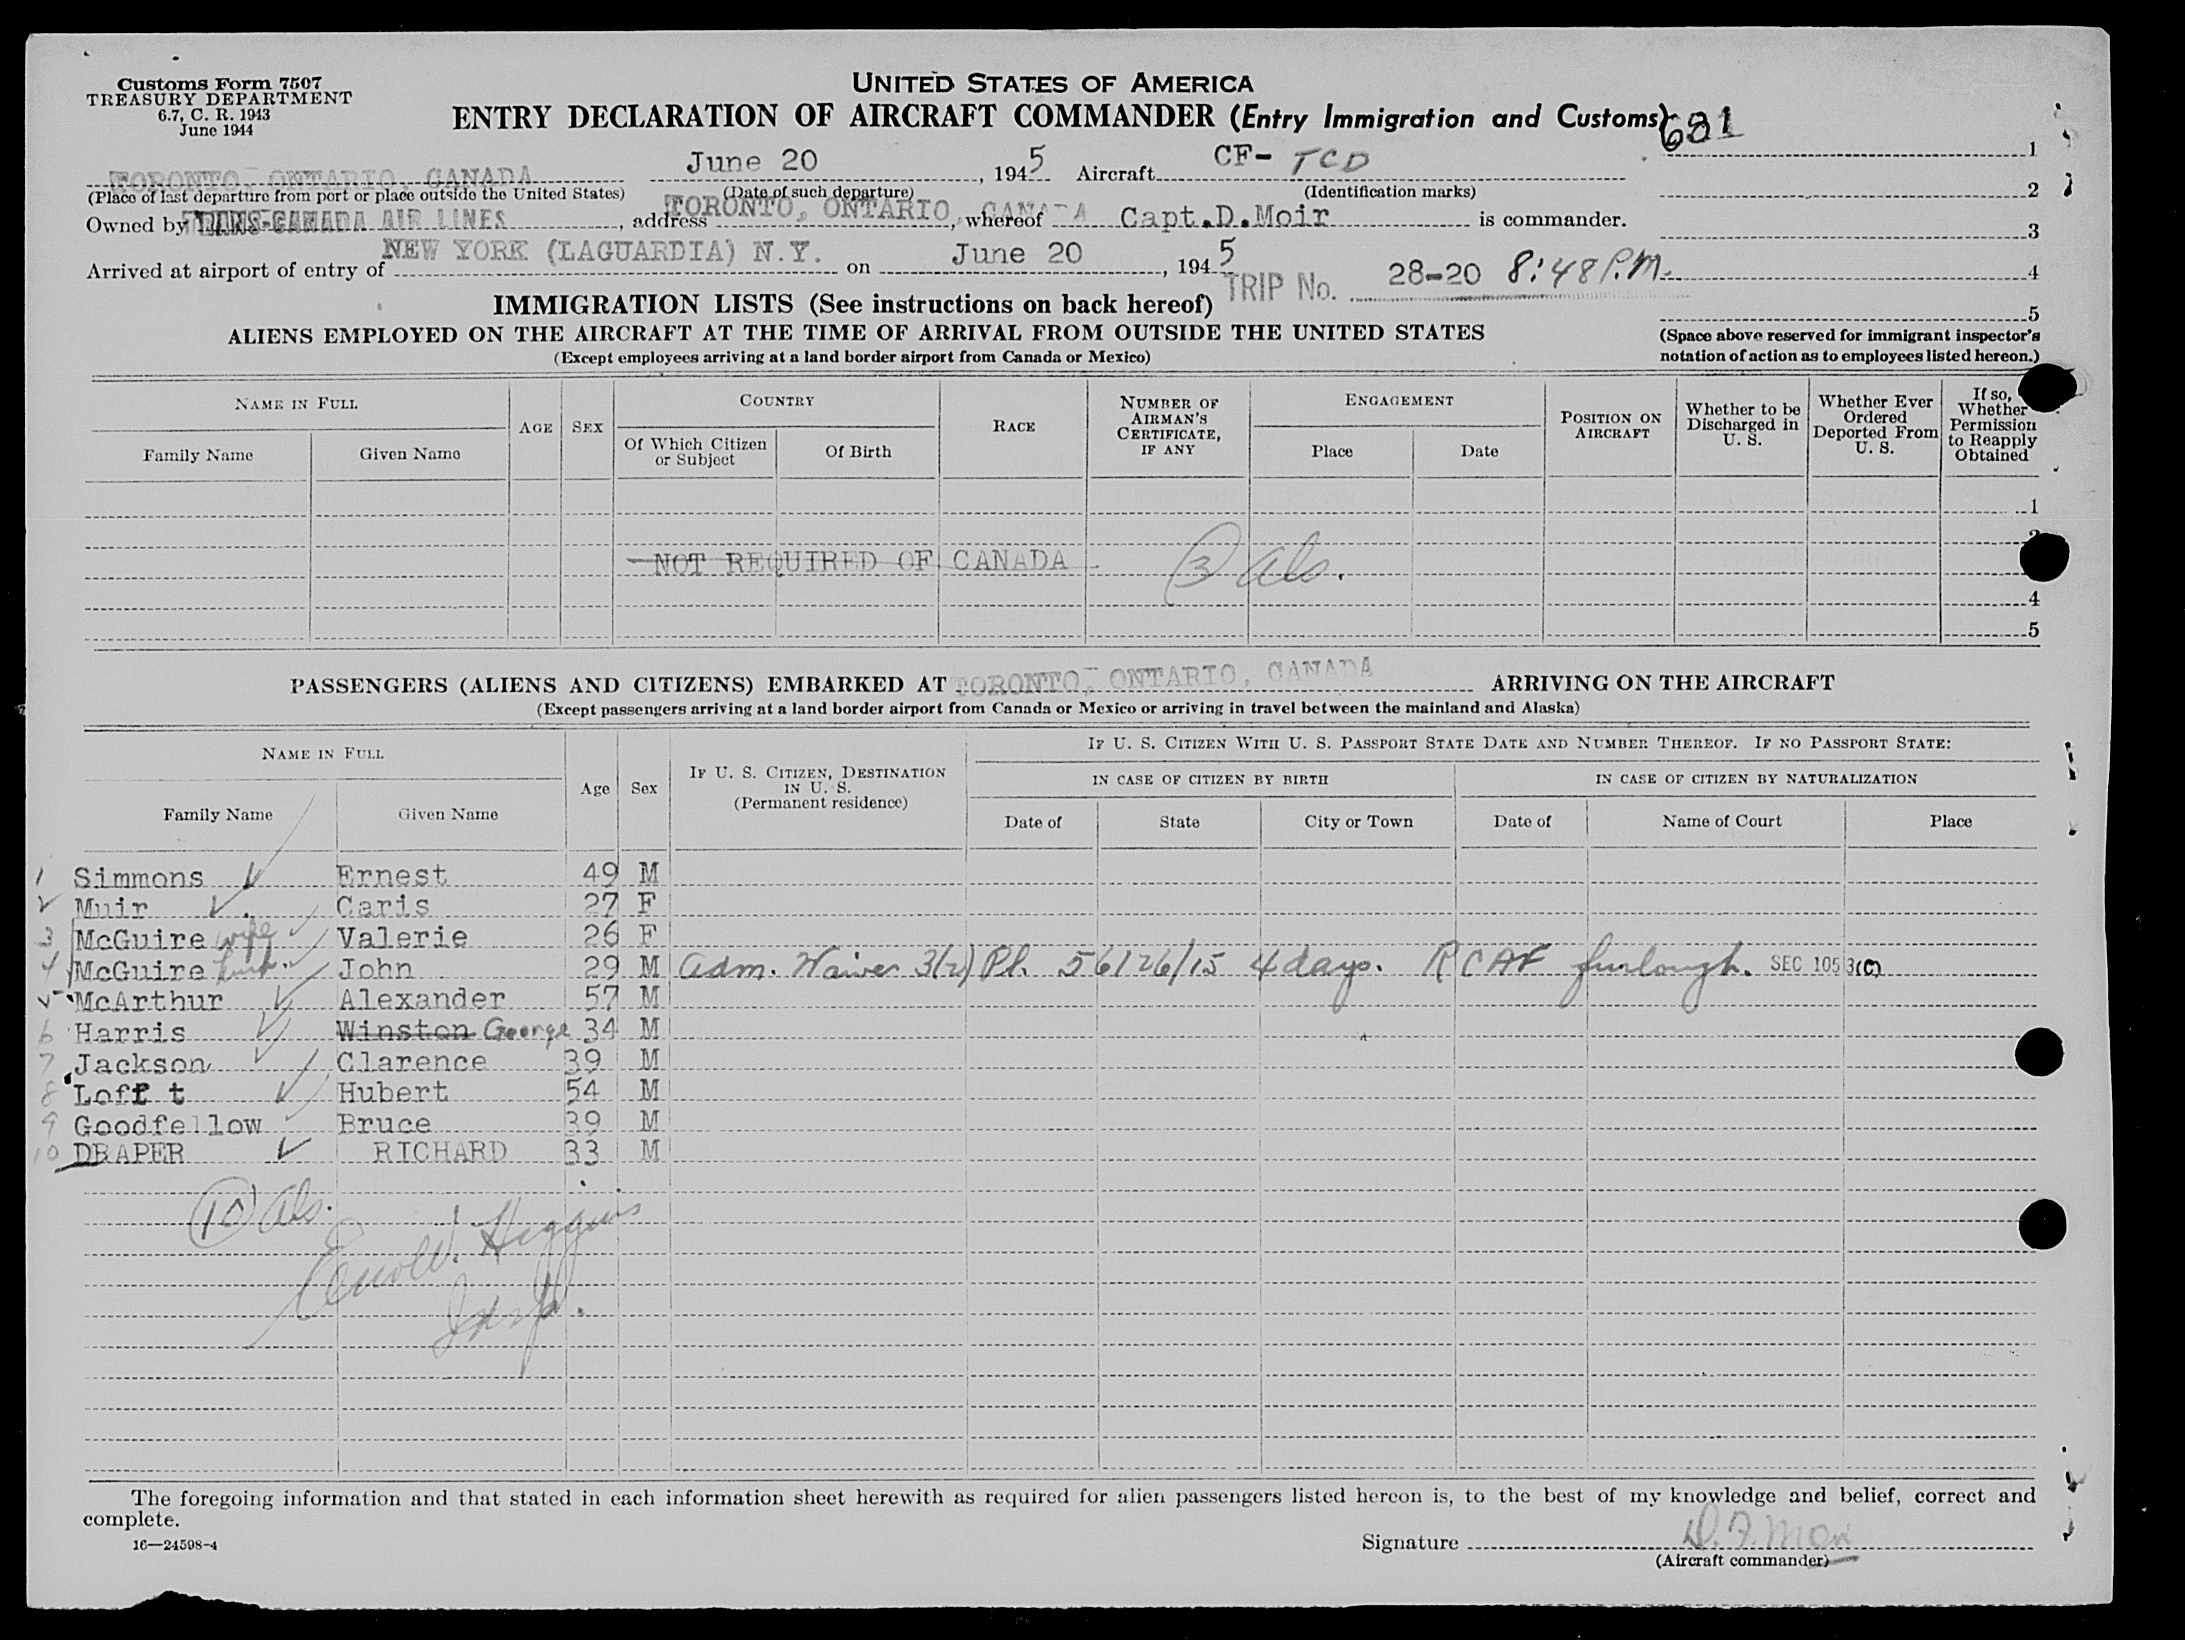 Customs Form 7507
TREASURY DEPARTMENT
6.7, C. R. 1943
June 1944
UNITED STATES OF AMERICA
ENTRY DECLARATION OF AIRCRAFT COMMANDER (Entry Immigration and Customs)
621
TORONTO, ONTARIO, CANADA June 20, 1945 Aircraft CF-TCD
(Place of last departure from port or place outside the United States) (Date of such departure) (Identification marks)
Owned by TRANS-CANADA AIR LINES, address TORONTO, ONTARIO, CANADA, whereof Capt.D.Moir is commander.
Arrived at airport of entry of NEW YORK (LAGUARDIA) N.Y. on June 20, 1945 TRIP No. 28-20 8:48 P.M.
1
2
3
4
5
IMMIGRATION LISTS (See instructions on back hereof)
ALIENS EMPLOYED ON THE AIRCRAFT AT THE TIME OF ARRIVAL FROM OUTSIDE THE UNITED STATES
(Except employees arriving at a land border airport from Canada or Mexico)
(Space above reserved for immigrant inspector's
notation of action as to employees listed hereon.)
NAME IN FULL
Family Name Given Name
AGE SEX
COUNTRY
Of Which Citizen or Subject Of Birth
RACE
NUMBER OF AIRMAN'S CERTIFICATE, IF ANY
ENGAGEMENT
Place Date
POSITION ON AIRCRAFT
Whether to be Discharged in U. S.
Whether Ever Ordered Deported From U. S.
If so, Whether Permission to Reapply Obtained
1
NOT REQUIRED OF CANADA - 3 als.
4
5
PASSENGERS (ALIENS AND CITIZENS) EMBARKED AT TORONTO, ONTARIO, CANADA ARRIVING ON THE AIRCRAFT
(Except passengers arriving at a land border airport from Canada or Mexico or arriving in travel between the mainland and Alaska)
NAME IN FULL
Family Name Given Name
Age Sex
IF U. S. CITIZEN, DESTINATION IN U. S. (Permanent residence)
IF U. S. CITIZEN WITH U. S. PASSPORT STATE DATE AND NUMBER THEREOF. IF NO PASSPORT STATE:
IN CASE OF CITIZEN BY BIRTH IN CASE OF CITIZEN BY NATURALIZATION
Date of State City or Town Date of Name of Court Place
1 Simmons Ernest 49 M
2 Muir Caris 27 F
3 McGuire wife Valerie 26 F
4 McGuire husb. John 29 M adm. Waiver 3(2) Pl. 56126/15 4 days. RCAF furlough. SEC 105 3(C)
5 McArthur Alexander 57 M
6 Harris Winston George 34 M
7 Jackson Clarence 39 M
8 Loff t Hubert 54 M
9 Goodfellow Bruce 39 M
10 DRAPER RICHARD 33 M
10 als.
Higgins
Insp.
The foregoing information and that stated in each information sheet herewith as required for alien passengers listed hereon is, to the best of my knowledge and belief, correct and
complete.
16—24598-4
Signature D.F. Moir
(Aircraft commander)